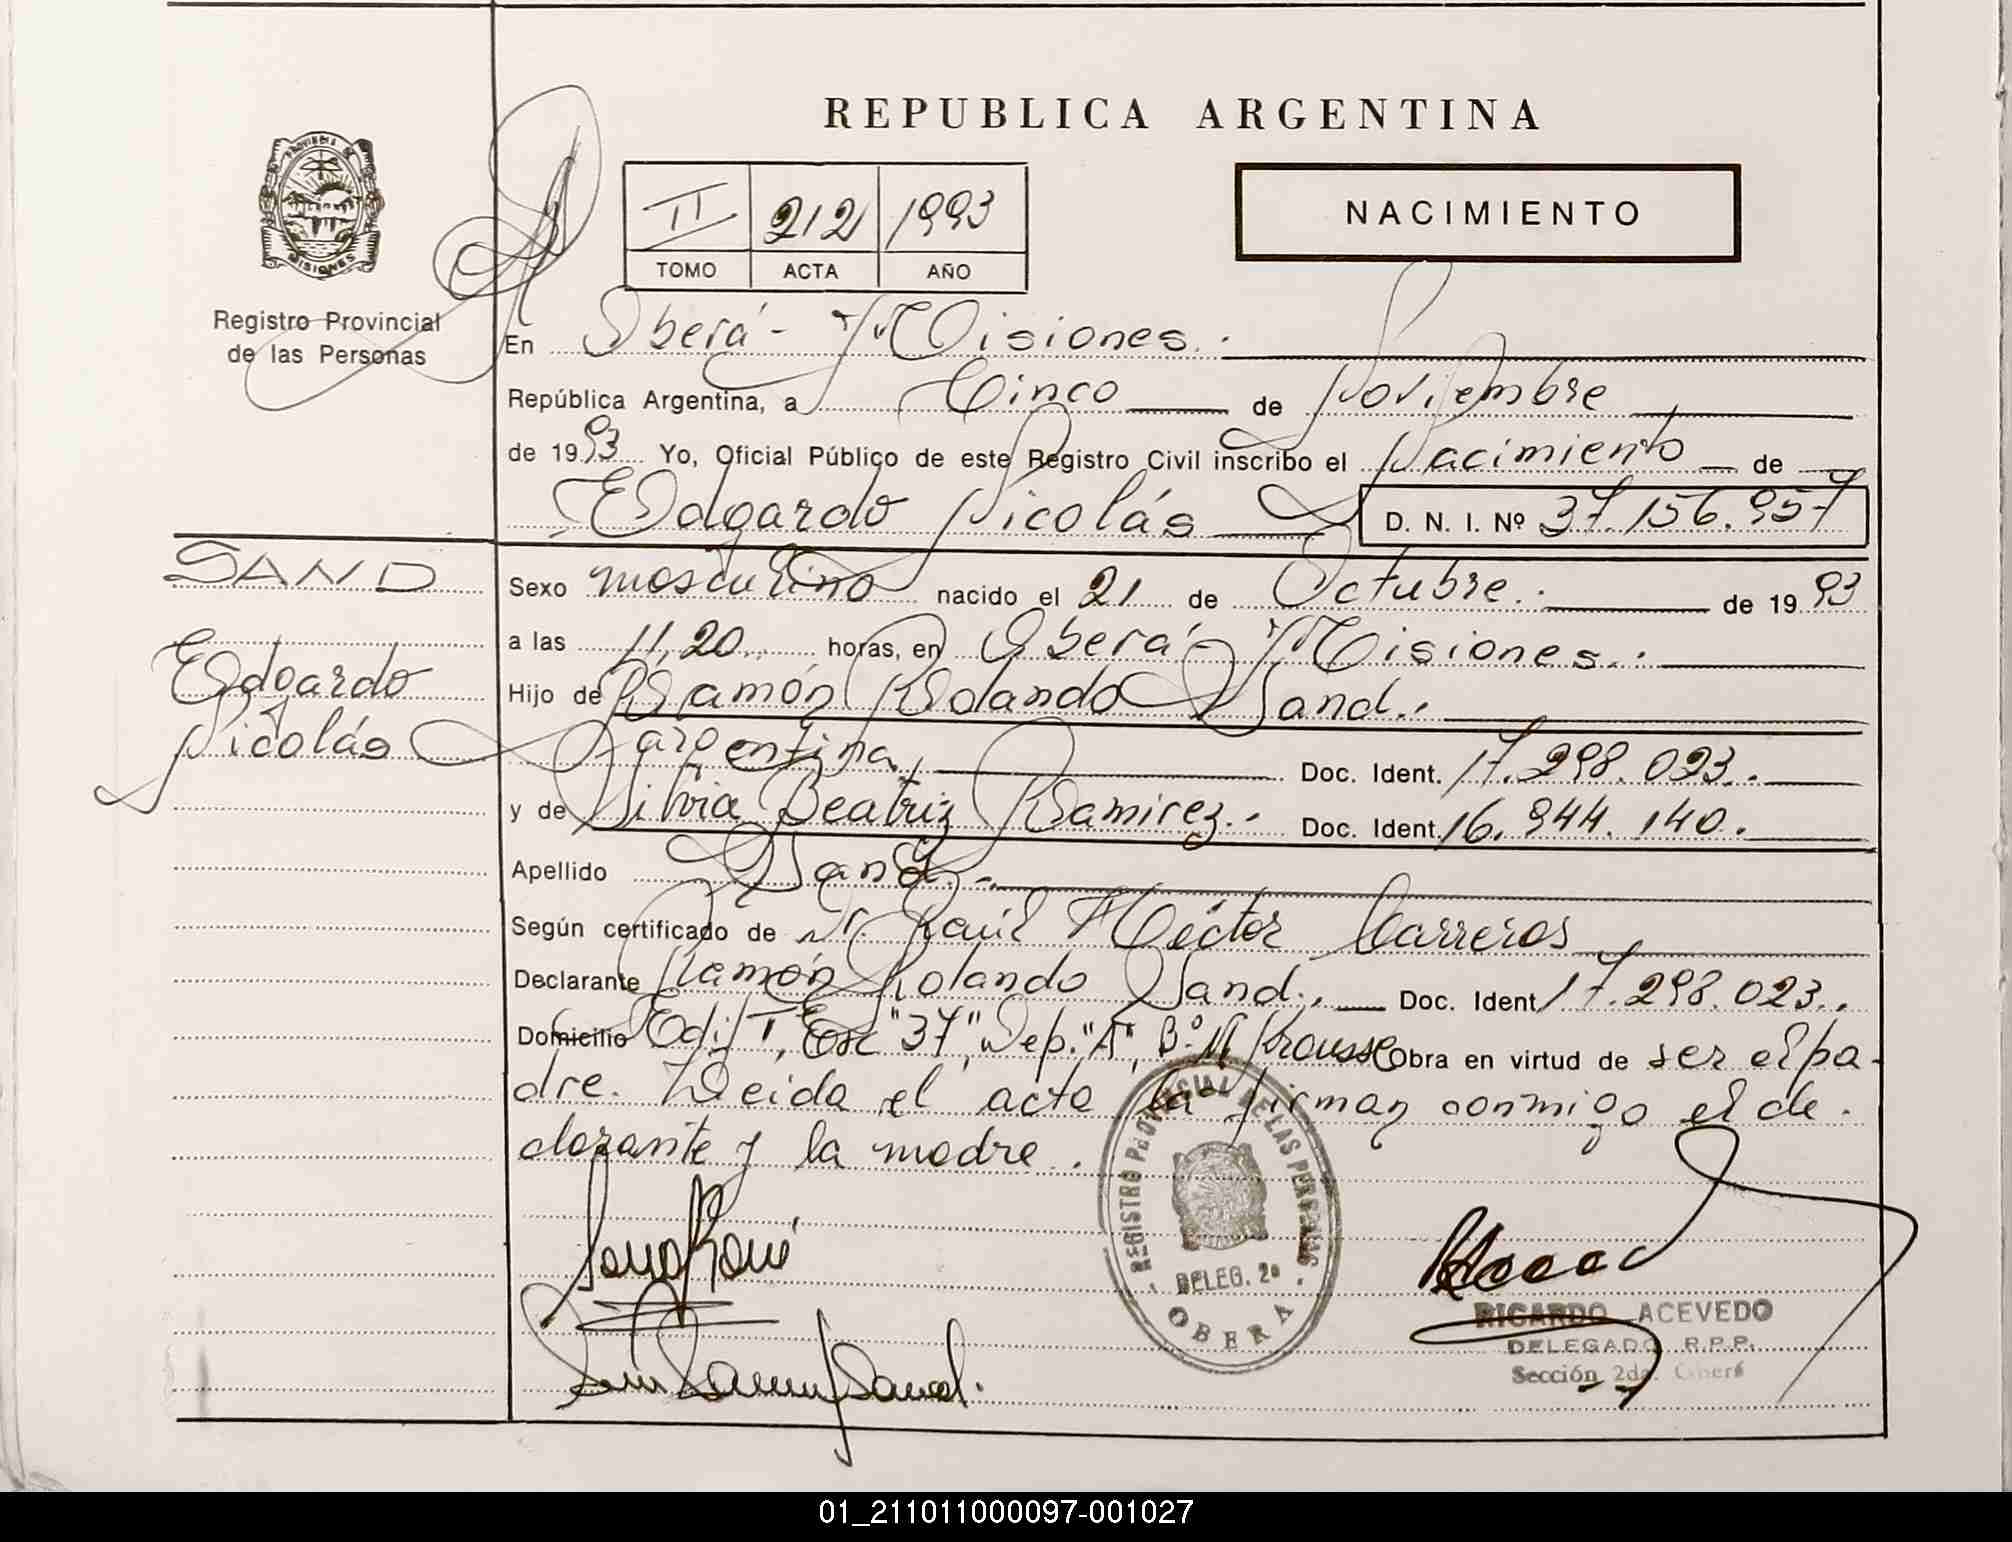 REPUBLICA ARGENTINA
PROVINCIA DE
MISIONES
Registro Provincial
de las Personas
II 212 1993
TOMO ACTA AÑO
NACIMIENTO
En Oberá - Misiones.
República Argentina, a Cinco de Noviembre
de 1993 Yo, Oficial Público de este Registro Civil inscribo el Nacimiento de
Edgardo Nicolás D. N. I. Nº 37.156.957
SAND
Edgardo
Nicolás
Sexo masculino nacido el 21 de Octubre. de 1993
a las 11,20 horas, en Oberá - Misiones.
Hijo de Ramón Rolando Sand.
argentina, Doc. Ident. 17.298.023.
y de Silvia Beatriz Ramirez. Doc. Ident. 16.944.140.
Apellido Sand.
Según certificado de Dr. Raúl Héctor Carreros
Declarante Ramón Rolando Sand. Doc. Ident. 17.298.023.
Domicilio Edif I, Esc "37", Dep. "A", Bº Krausse Obra en virtud de ser el pa-
dre. Leida el acta la firman conmigo el de-
clarante y la madre.
REGISTRO PROVINCIAL DE LAS PERSONAS
DELEG. 2ª
OBERA
RICARDO ACEVEDO
DELEGADO R.P.P.
Sección 2da. Oberá
01_211011000097-001027